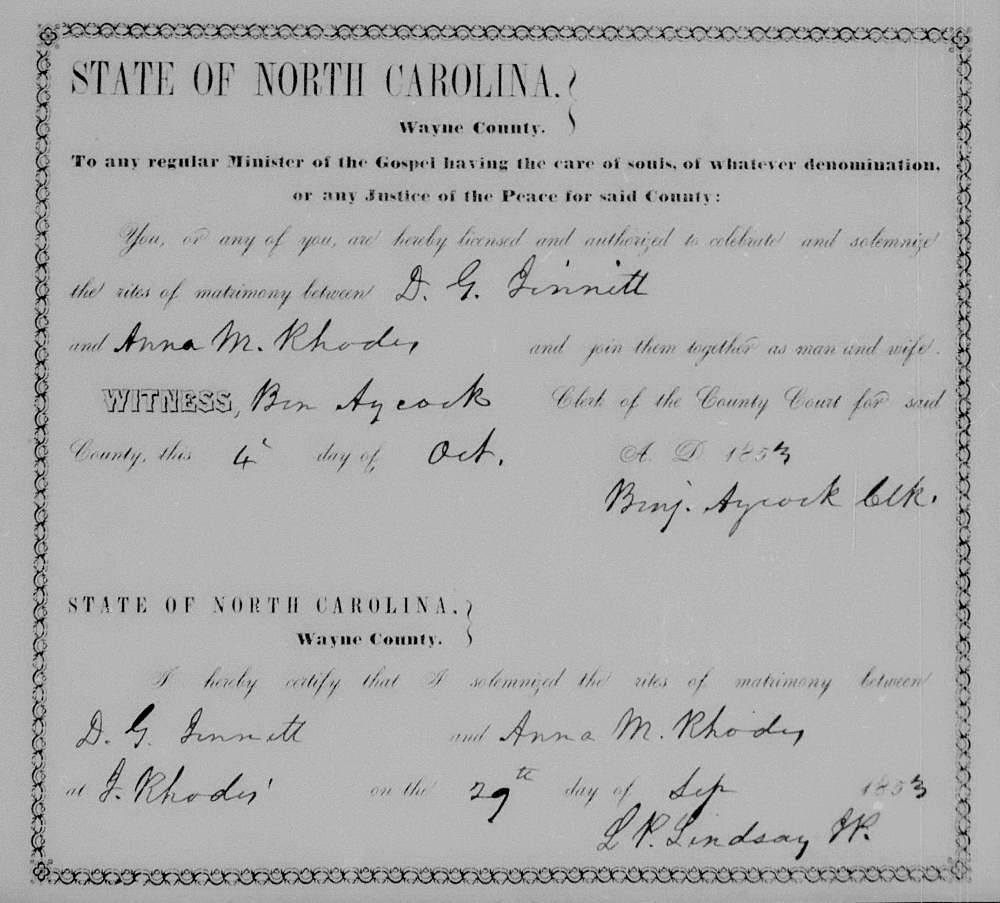 STATE OF NORTH CAROLINA.
Wayne County.
To any regular Minister of the Gospel having the care of souls, of whatever denomination,
or any Justice of the Peace for said County:
You, or any of you, are hereby licensed and authorized to celebrate and solemnize
the rites of matrimony between D. G. Jinnett
and Anna M. Rhodes and join them together as man and wife.
WITNESS, Ben Aycock Clerk of the County Court for said
County, this 4 day of Oct. A. D. 1853
Benj. Aycock Clk.
STATE OF NORTH CAROLINA.
Wayne County.
I hereby certify that I solemnized the rites of matrimony between
D. G. Jinnett and Anna M. Rhodes
at J. Rhodes' on the 29th day of Sep 1853
L P. Lindsay JP.